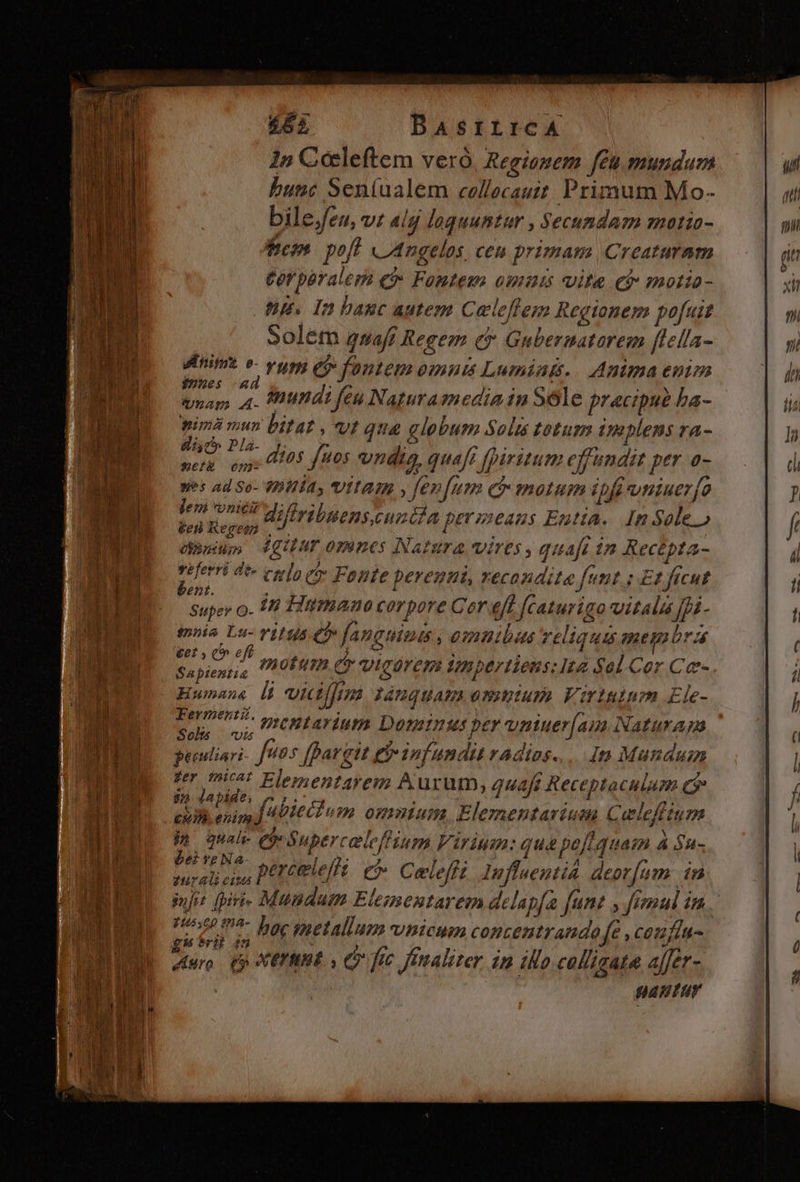 BASILICA
In Cœleſtem verò Regionem ſeu mundum
hunc Senſualem collocauit Primum Mo-
bile, ſeu, vt alij loquuntur, Secundam motio-
nem poſt Angelos, ceu primam Creaturam
Corporalem & Fontem omnis vitæ & motio-
nis. In hanc autem Cæleſtem Regionem poſuit
Solem quaſi Regem & Gubernatorem ſtella-
rum & fontem omnis Luminis. Anima enim
mundi ſeu Natura media in Sole præcipuè ha-
bitat, vt quæ globum Solis totum implens ra-
dios ſuos vndiq, quaſi ſpiritum effundit per o-
mnia, vitam, ſenſum & motum ipſi vniuerſo
diſtribuens, cuncta permeans Entia. In Sole
igitur omnes Naturæ vires, quaſi in Recepta-
culo & Fonte perenni, reconditæ ſunt: Et ſicut
in Humano corpore Cor eſt ſcaturigo vitalis ſpi-
ritus & ſanguinis, omnibus reliquis membris
motum & vigorem impertiens: Ita Sol Cor Cæ-
li viuiſſim tanquam omnium Virtutum Ele-
mentarium Dominus per vniuerſam Naturam
ſuos ſpargit & infundit radios. In Mundum
Elementarem Aurum, quaſi Receptaculum &
ſubiectum omnium Elementarium Cæleſtium
& Supercæleſtium Virium: quæ poſtquam à Su-
percæleſti & Cæleſti Influentiâ deorſum in
Mundum Elementarem delapſæ ſunt, ſimul in
hoc metallum vnicum concentrando ſe, conflu-
xerunt, & ſic finaliter in illo colligatæ aſſer-
uantur
Animæ o-
mnes ad
vnam A-
nimā mun
dig Pla-
netæ om-
nes ad So-
lem vnicū
ceu Regem
omnium
referri de-
bent.
Super o-
mnia Lu-
cet, & eſt
Sapientia
Humana
Fermenti.
Solis vis
peculiari-
ter micat
in lapide,
cùm enim
in quali-
bet re Na-
turali eius
inſit ſpiri-
tus, ep ma-
gis erit in
Auro